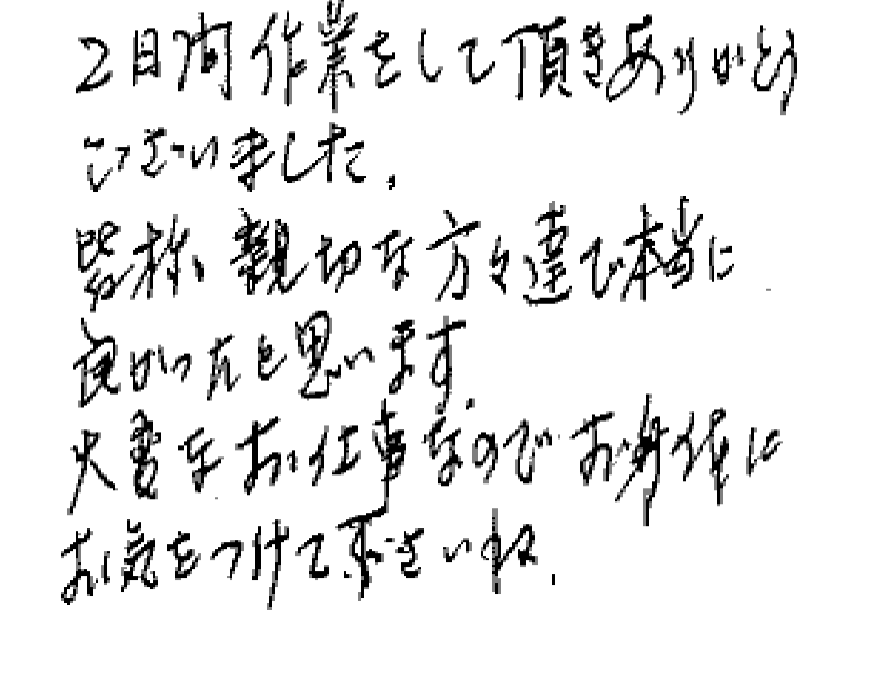 2日間作業をして頂きありがとう
ございました.
皆様、親切な方々達で本当に
良かったと思います.
大変なお仕事なのでお身体に
お気をつけて下さいね.